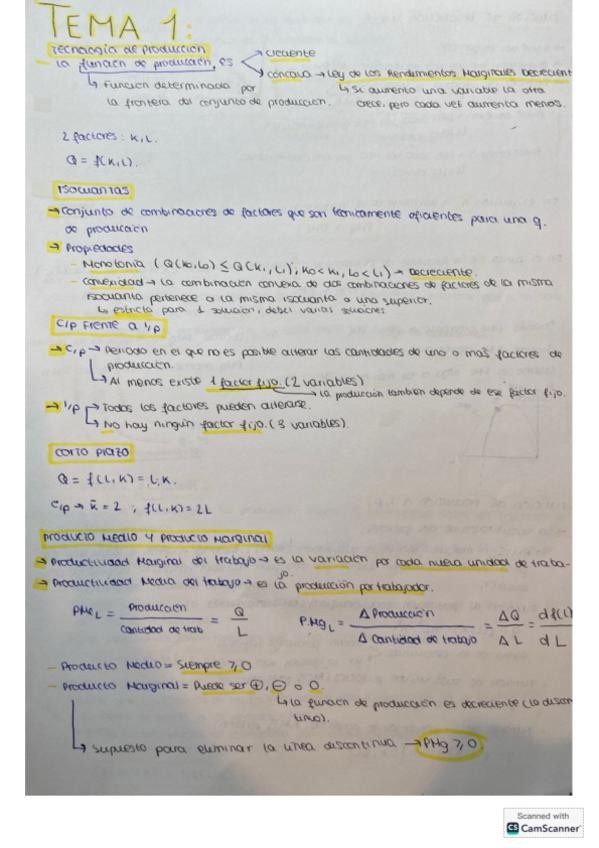 TEMA 1:
Tecnología de producción
La función de producción, es
creciente
concava → Ley de los Rendimientos Marginales Decrecient
↳ Función determinada por
la frontera del conjunto de producción.
↳ Si aumento una variable la otra
crece, pero cada vez aumenta menos.
2 factores: K, L.
Q = f(K, L).
ISOCUANTAS
→ Conjunto de combinaciones de factores que son técnicamente eficientes para una q.
de producción
→ Propiedades
- Monotonía (Q(K0, L0) ≤ Q(K1, L1); K0 < K1, L0 < L1) → Decreciente.
- Convexidad → La combinación convexa de dos combinaciones de factores de la misma
isocuanta pertenece a la misma isocuanta o una superior.
↳ estricta para 1 solución, debil varias soluciones
C/P frente a l/p
→ C/P → Periodo en el que no es posible alterar las cantidades de uno o más factores de
producción.
↳ Al menos existe 1 factor fijo. (2 variables)
↳ La producción también depende de ese factor fijo.
→ l/p → Todos los factores pueden alterarse.
↳ No hay ningún factor fijo. (3 variables).
CORTO PLAZO
Q = f(L, K) = L·K.
C/P → K̄ = 2 ; f(L, K) = 2L
PRODUCTO MEDIO Y PRODUCTO MARGINAL
→ Productividad Marginal del trabajo → es la variación por cada nueva unidad de traba-
jo.
→ Productividad Media del trabajo → es la producción por trabajador.
PMe L = Producción / Cantidad de trab = Q / L
PMg L = Δ Producción / Δ Cantidad de trabajo = ΔQ / ΔL = df(L) / dL
- Producto Medio = Siempre ≥ 0
- Producto Marginal = Puede ser ⊕, ⊖ o 0.
↳ La función de producción es decreciente (lo discon
tinuo).
↳ Supuesto para eliminar la línea discontinua → PMg ≥ 0.
Scanned with
CS CamScanner